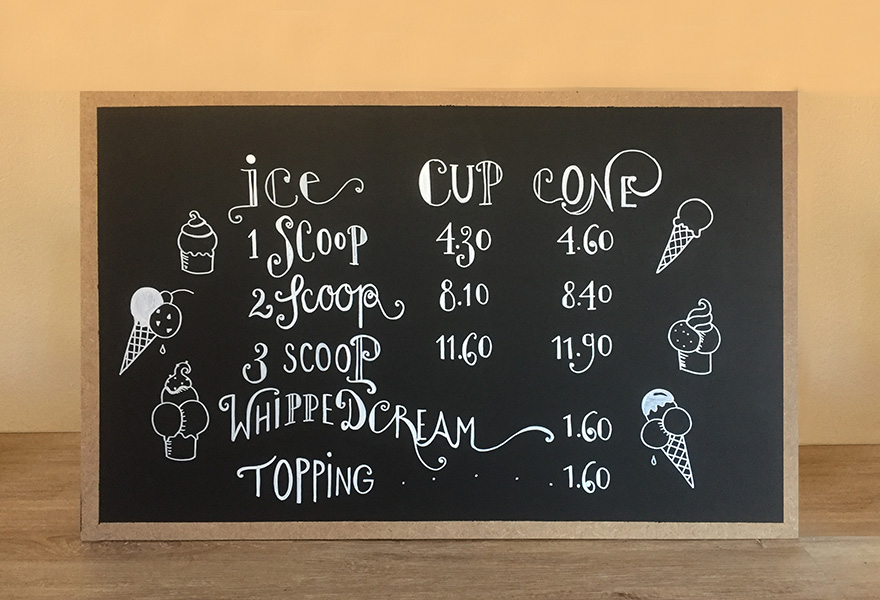 ice CUP CONE
1 SCOOP 4.30 4.60
2 Scoop 8.10 8.40
3 SCOOP 11.60 11.90
WHIPPED CREAM 1.60
TOPPING . . . . . 1.60